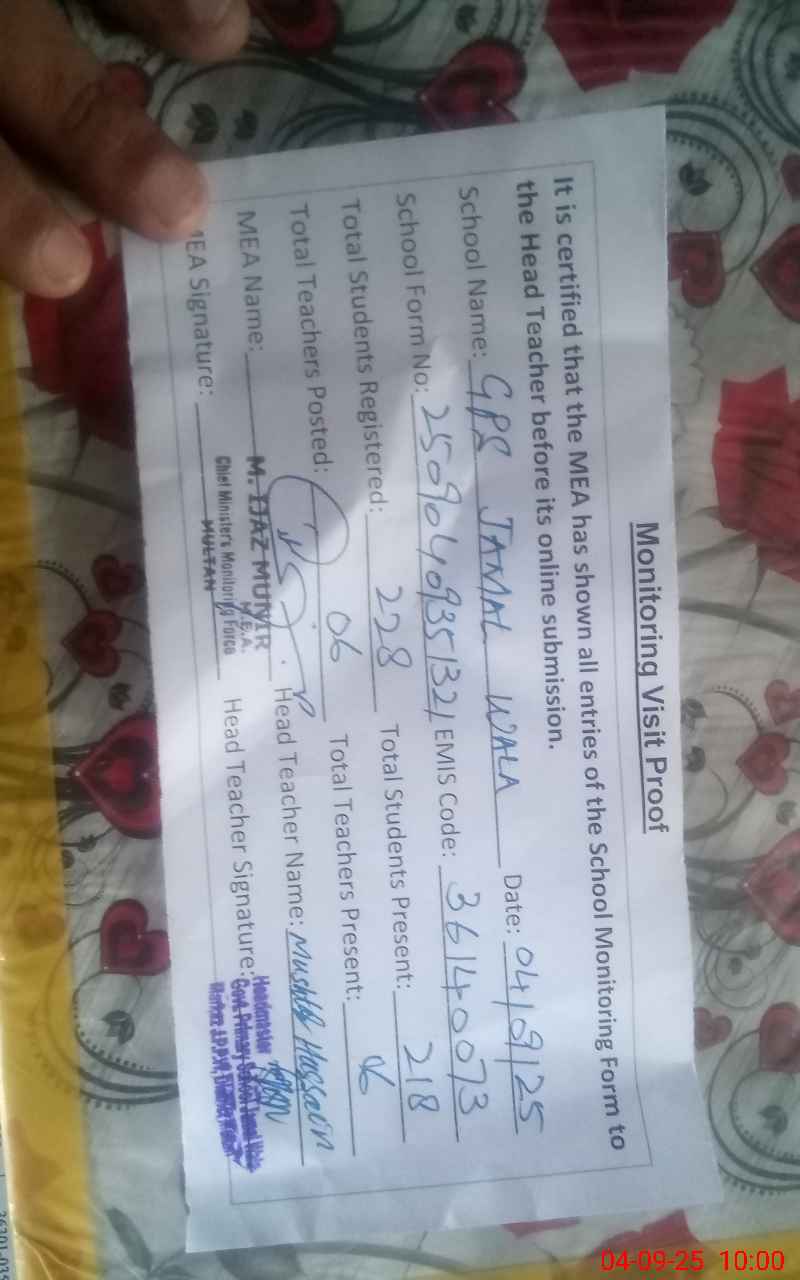 Monitoring Visit Proof
It is certified that the MEA has shown all entries of the School Monitoring Form to
the Head Teacher before its online submission.
School Name: GPS JAMAL WALA Date: 04/9/25
School Form No: 25090409351321 EMIS Code: 36140073
Total Students Registered: 228 Total Students Present: 218
Total Teachers Posted: 06 Total Teachers Present: 06
MEA Name: M. IJAZ MUNIR Head Teacher Name: Mushtaq Hussain
M.E.A.
Chief Minister's Monitoring Force
MULTAN
MEA Signature: Head Teacher Signature:
Headmaster
Govt. Primary School Jamal Wala
04-09-25 10:00